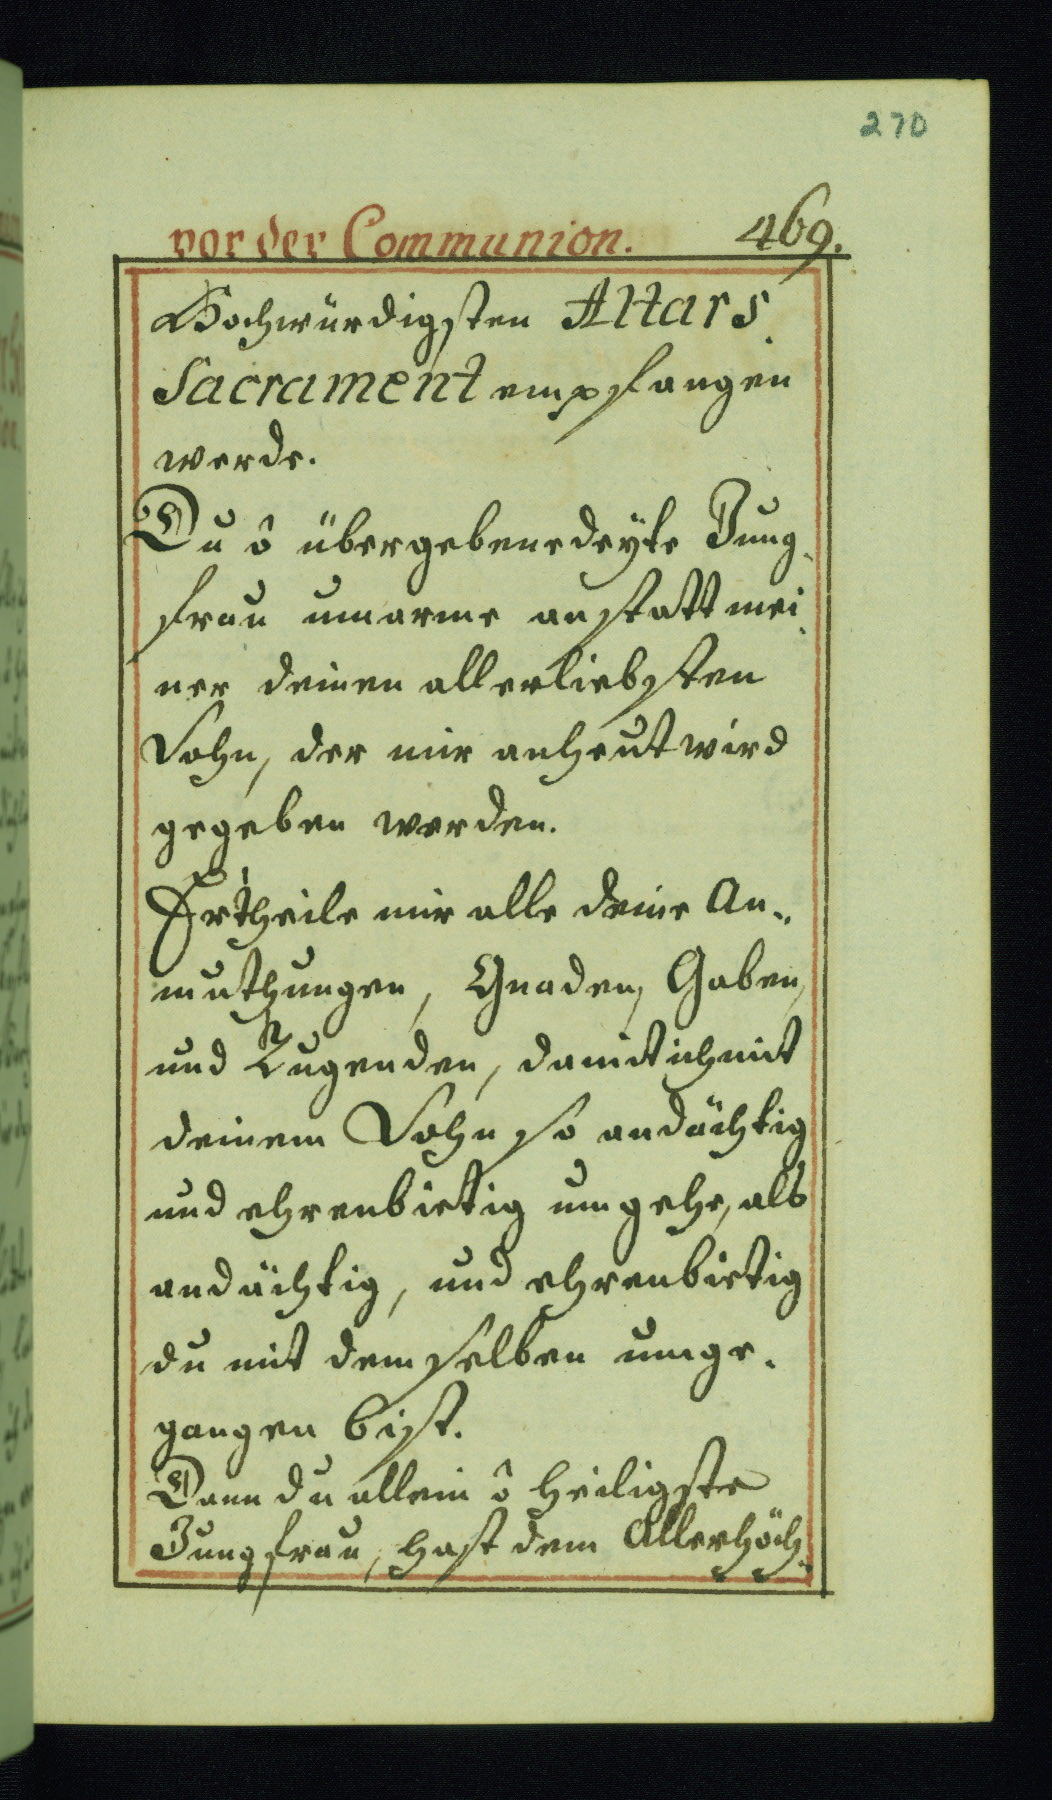 270
vor der Communion. 469.
Hochwürdigsten Altars
Sacrament empfangen
werde.
Du ô übergebenedeyte Jung-
frau umarme anstatt mei-
ner deinen allerliebsten
Sohn, der mir anheut wird
gegeben werden.
Ertheile mir alle deine An-
muthungen, Gnaden, Gaben,
und Tugenden, damit ich mit
deinem Sohn so andächtig
und ehrenbietig umgehe, als
andächtig, und ehrenbietig
du mit demselben umge-
gangen bist.
Dann du allein ô heiligste
Jungfrau, hast dem Allerhöch-